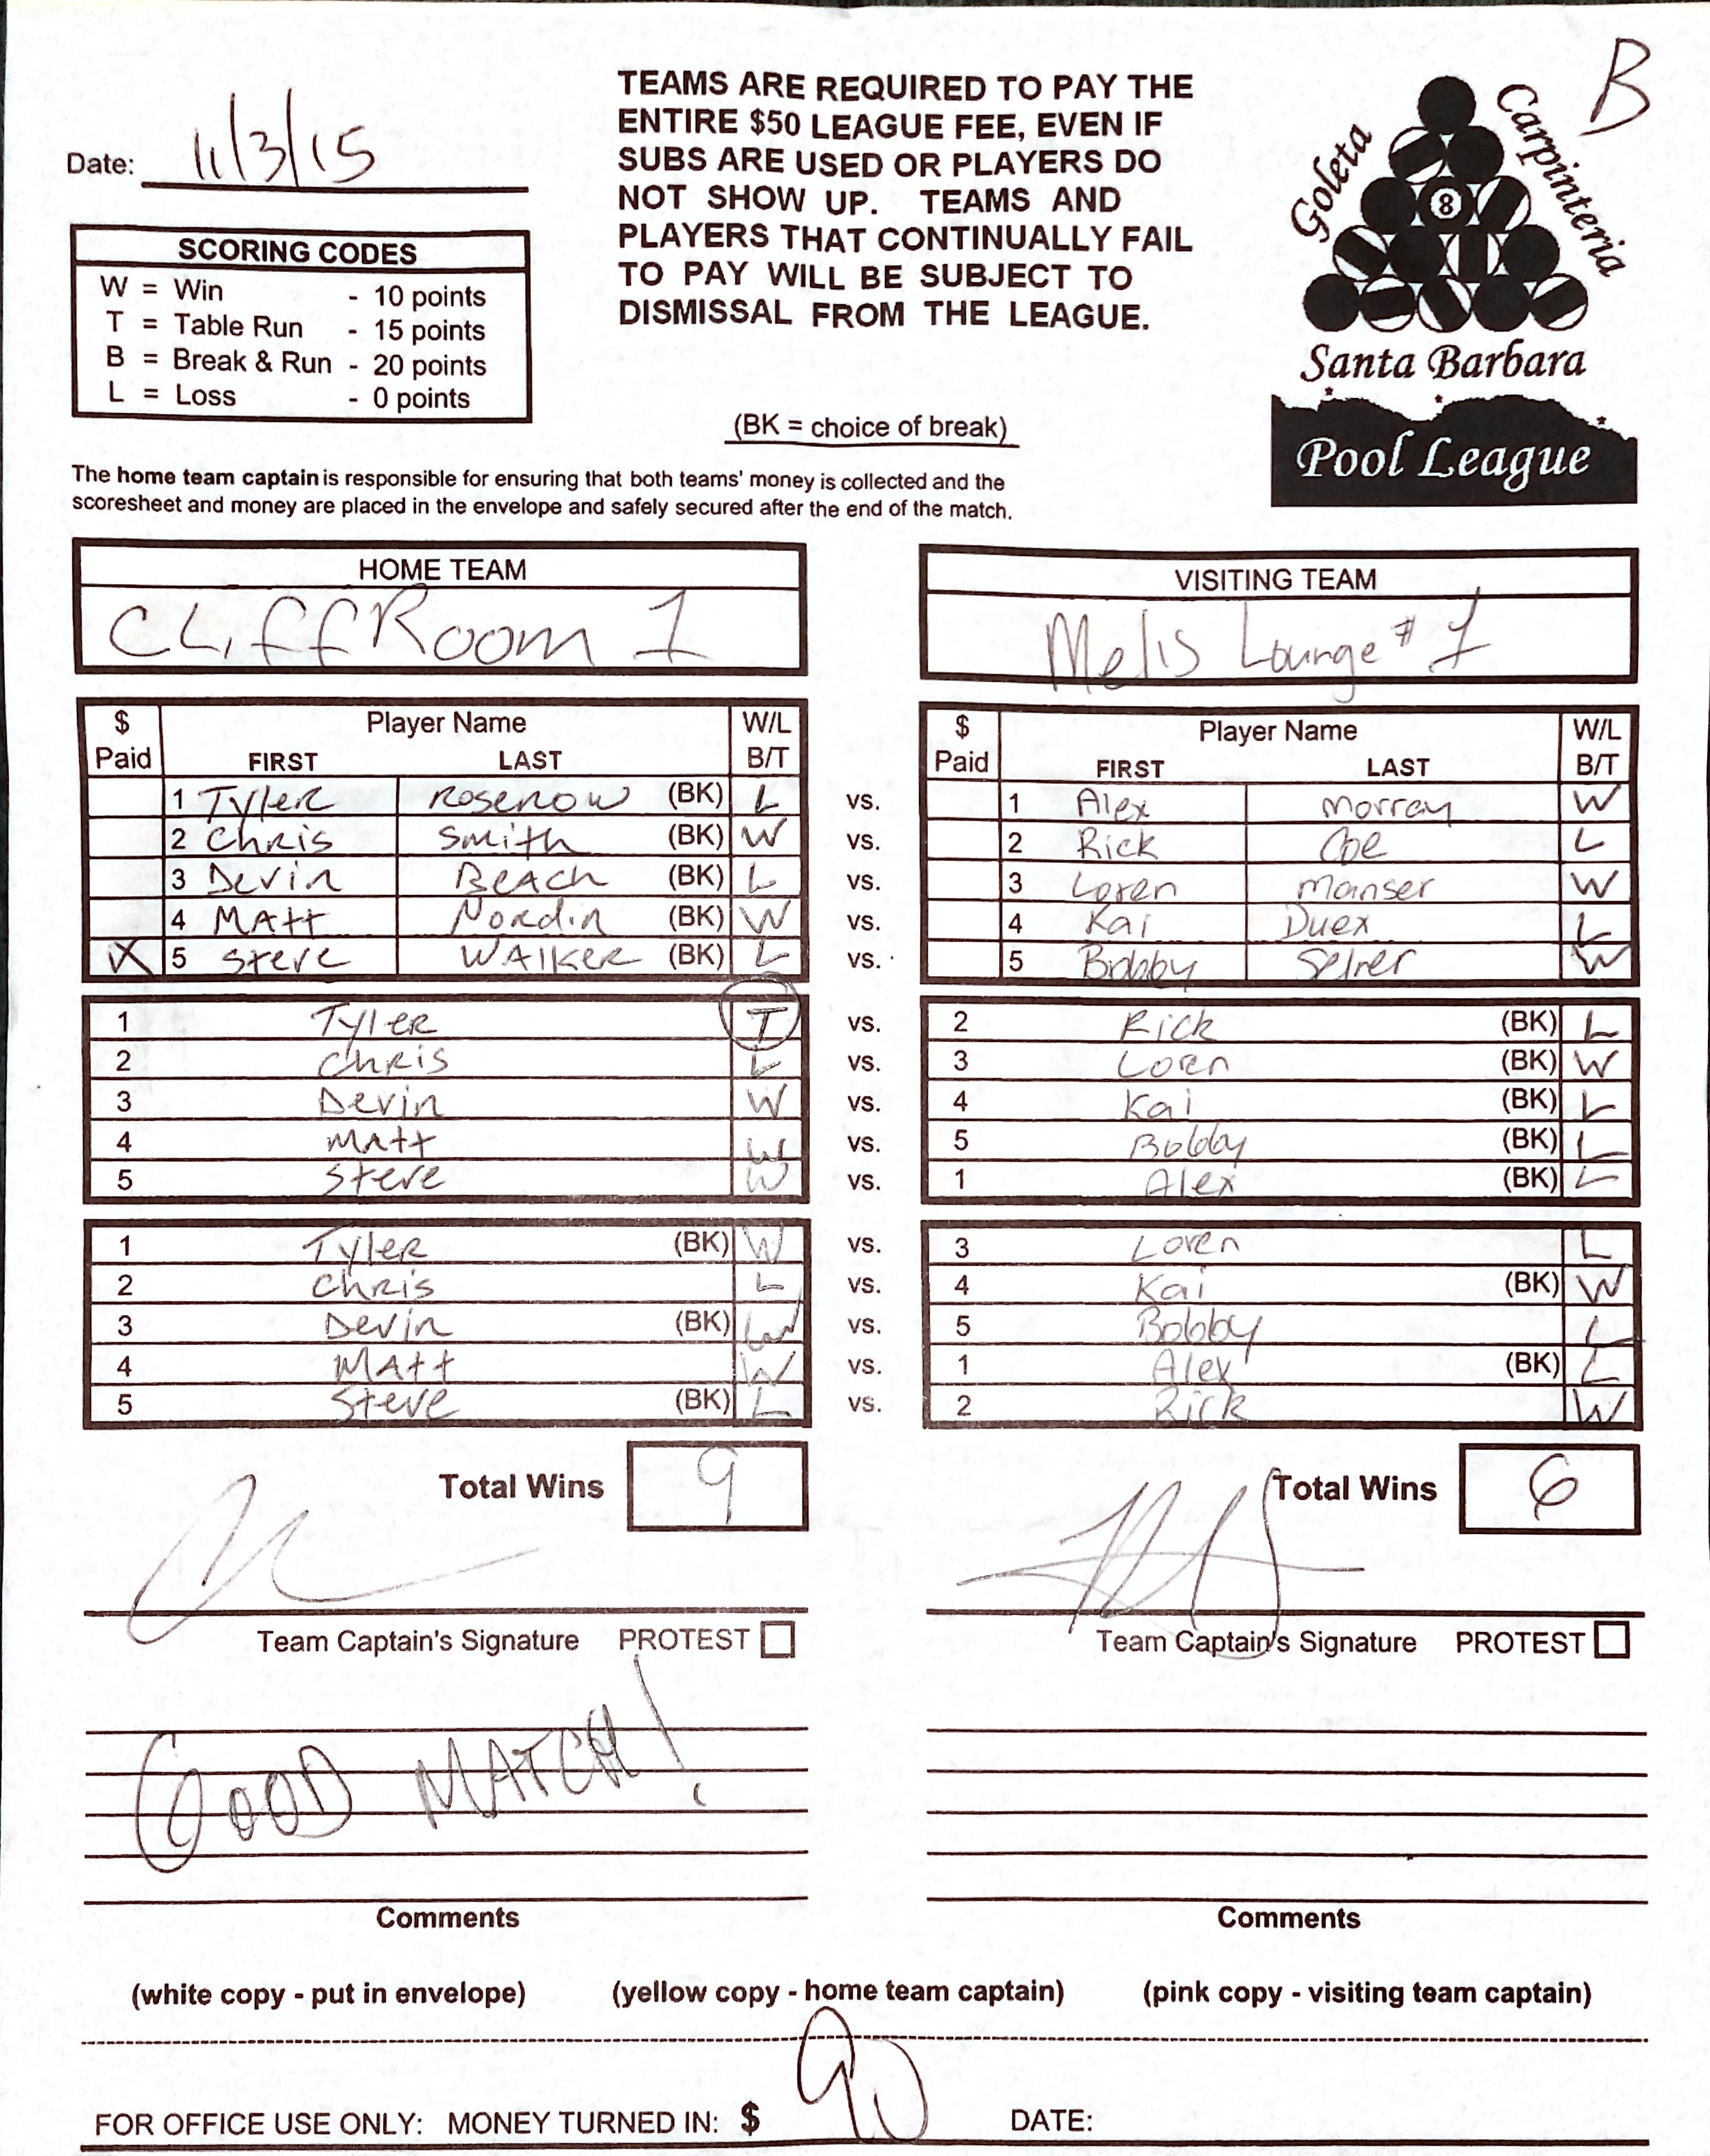 B
Date: 11/3/15
TEAMS ARE REQUIRED TO PAY THE
ENTIRE $50 LEAGUE FEE, EVEN IF
SUBS ARE USED OR PLAYERS DO
NOT SHOW UP. TEAMS AND
PLAYERS THAT CONTINUALLY FAIL
TO PAY WILL BE SUBJECT TO
DISMISSAL FROM THE LEAGUE.
Goleta
Carpinteria
8
Santa Barbara
Pool League
SCORING CODES
W = Win - 10 points
T = Table Run - 15 points
B = Break & Run - 20 points
L = Loss - 0 points
(BK = choice of break)
The home team captain is responsible for ensuring that both teams' money is collected and the
scoresheet and money are placed in the envelope and safely secured after the end of the match.
HOME TEAM VISITING TEAM
CLiffRoom 1 Mels Lounge #1
$ Player Name W/L $ Player Name W/L
Paid FIRST LAST B/T Paid FIRST LAST B/T
1 Tyler Rosenow (BK) L vs. 1 Alex Morray W
2 Chris Smith (BK) W vs. 2 Rick Coe L
3 Devin Beach (BK) L vs. 3 Loren Manser W
4 Matt Nordin (BK) W vs. 4 Kai Duex L
X 5 Steve Walker (BK) L vs. 5 Bobby W
1 Tyler T vs. 2 Rick (BK) L
2 Chris L vs. 3 Loren (BK) W
3 Devin W vs. 4 Kai (BK) L
4 Matt W vs. 5 Bobby (BK) L
5 Steve W vs. 1 Alex (BK) L
1 Tyler (BK) W vs. 3 Loren L
2 Chris L vs. 4 Kai (BK) W
3 Devin (BK) W vs. 5 Bobby L
4 Matt W vs. 1 Alex (BK) L
5 Steve (BK) L vs. 2 Rick W
Total Wins 9 Total Wins 6
Team Captain's Signature PROTEST Team Captain's Signature PROTEST
GOOD MATCH!
Comments Comments
(white copy - put in envelope) (yellow copy - home team captain) (pink copy - visiting team captain)
FOR OFFICE USE ONLY: MONEY TURNED IN: $ 90 DATE: